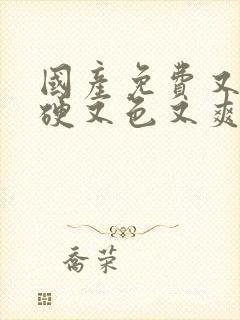 國產免費又
硬又色又爽
喬荣